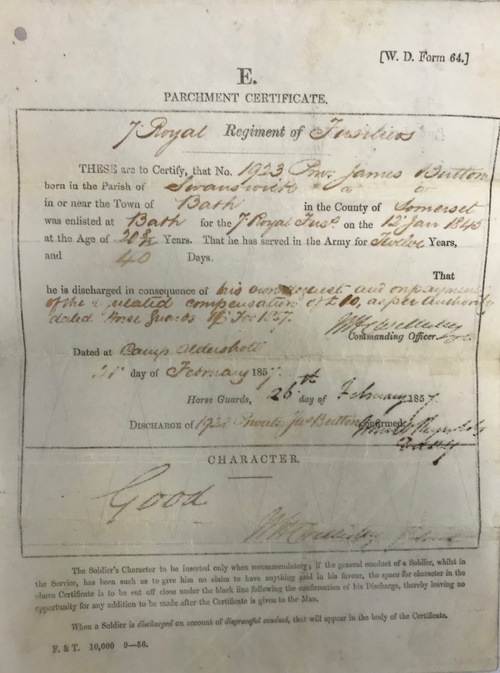 [W. D. Form 64.]
E.
PARCHMENT CERTIFICATE.
7 Royal Regiment of Fusiliers
THESE are to Certify, that No. 1923 James Button
born in the Parish of Swanswick
in or near the Town of Bath in the County of Somerset
was enlisted at Bath for the 7 Royal Fusrs on the 12 Jan 1845
at the Age of Years. That he has served in the Army for Twelve Years,
and 40 Days.
That
he is discharged in consequence of his own request and on payment
of the compensation of £10, as per Authority
dated Horse Guards Feb 1857.
Commanding Officer.
Dated at Camp Aldershott
day of February 1857.
Horse Guards, 26th day of February 1857.
DISCHARGE OF Private Jas Button confirmed.
CHARACTER.
Good
The Soldier's Character to be inserted only when recommendatory; if the general conduct of a Soldier, whilst in
the Service, has been such as to give him no claim to have anything said in his favour, the space for character in
the above Certificate is to be cut off close under the black line following the confirmation of his Discharge, thereby leaving no
opportunity for any addition to be made after the Certificate is given to the Man.
When a Soldier is discharged on account of disgraceful conduct, that will appear in the body of the Certificate.
F. & T. 10,000 9—56.